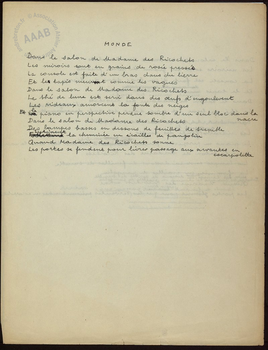 AAAB
MONDE
Dans le salon de Madame des Ricochets
Les miroirs sont en grains de rosée pressés
La console est faite d'un bras dans du lierre
Et le tapis meurt comme les vagues
Dans le salon de Madame des Ricochets
Le thé de lune est servi dans des œufs d'engoulevent
Les rideaux amorcent la fonte des neiges
Et le piano en perspective perdue sombre d'un seul bloc dans la
nacre
Dans le salon de Madame des Ricochets
Des lampes basses en dessous de feuilles de tremble
la cheminée en écailles de pangolin
Quand Madame des Ricochets sonne
Les portes se fendent pour livrer passage aux servantes en
escarpolette